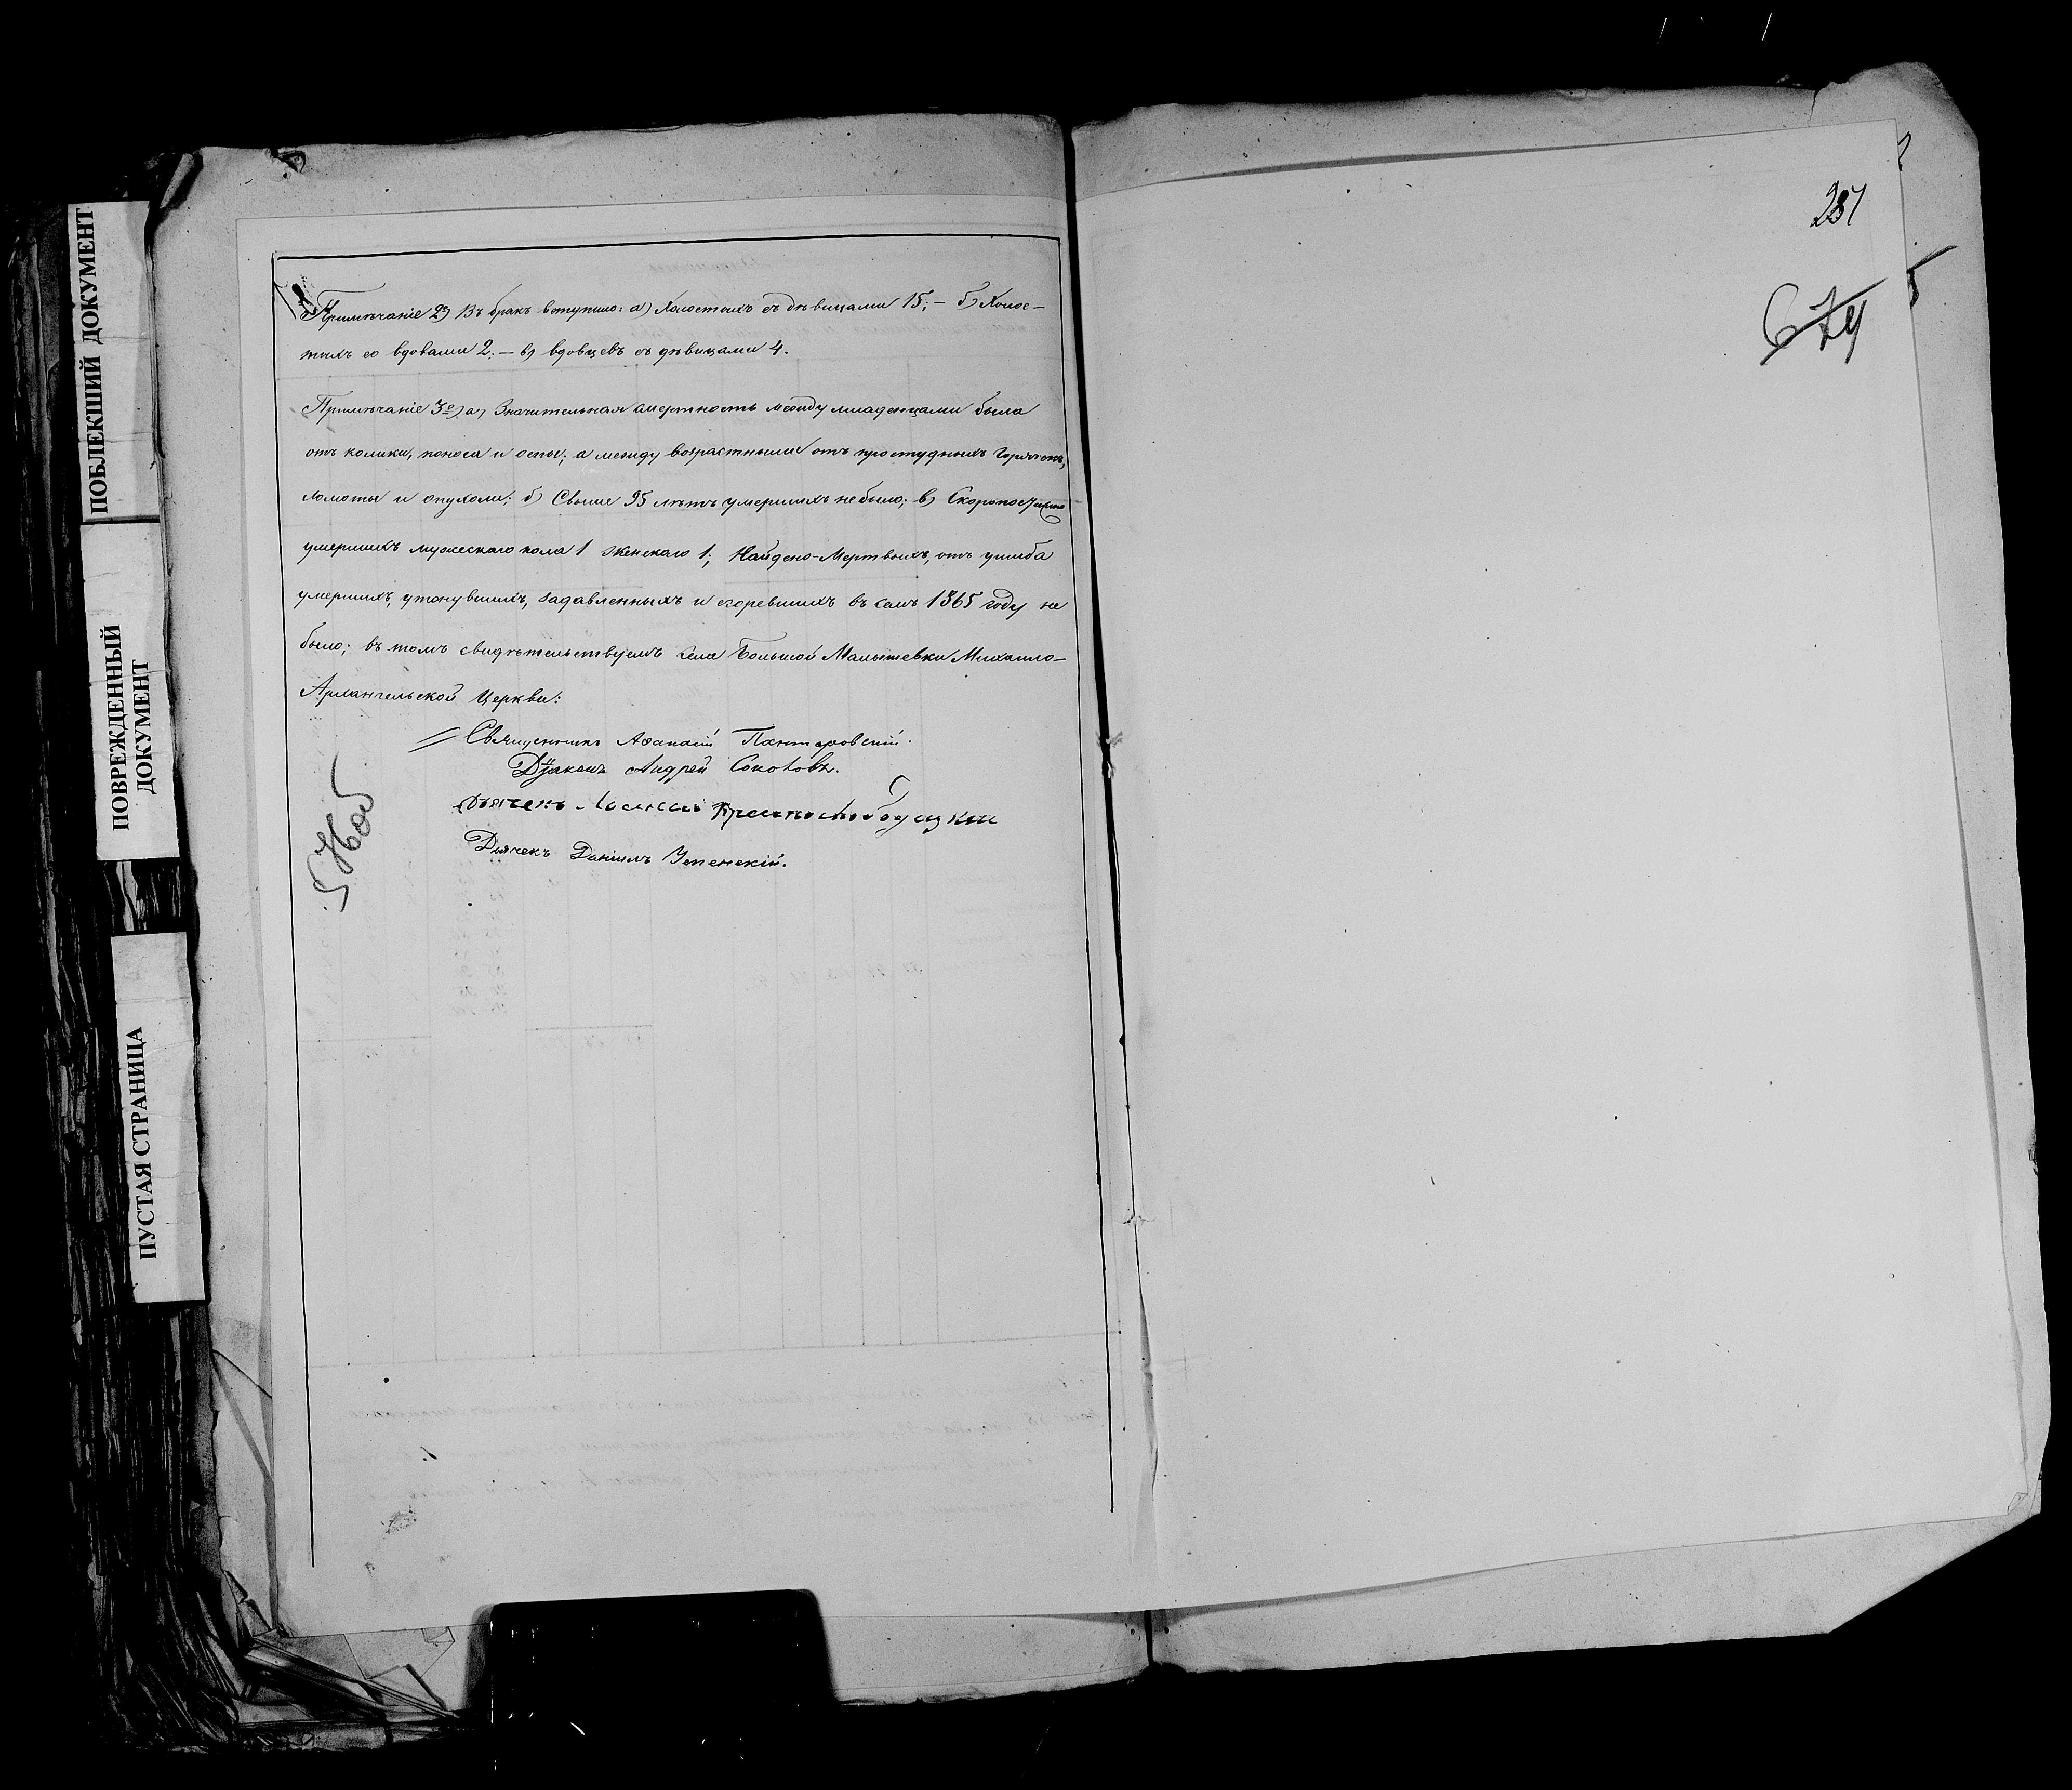 ПОБЛЕКШИЙ ДОКУМЕНТ
ПОВРЕЖДЕННЫЙ
ДОКУМЕНТ
ПУСТАЯ СТРАНИЦА
Примѣчаніе 2е) Въ бракъ вступило: а) Холостыхъ съ дѣвицами 15; – б) Холос–
тыхъ со вдовами 2. – в) вдовцевъ съ дѣвицами 4.
Примѣчаніе 3е) а) Значительная смертность между младенцами была
отъ колики, поноса и оспы; а между возрастными отъ простудныхъ горячекъ,
ломоты и опухоли; б) Свыше 95 лѣтъ умершихъ не было; в) Скоропостижно
умершихъ мужескаго пола 1 женскаго 1; Найдено–Мертвыхъ, отъ ушиба
умершихъ, утонувшихъ, задавленныхъ и сгоревшихъ въ семъ 1865 году не
было; въ томъ свидѣтельствуемъ села Большой Малышевки Михаило–
Архангельской Церкви:
Священникъ Афанасій
Діаконъ Андрей Соколовъ.
Дьячекъ
Дьячекъ Даніилъ Успенскій.
281
674
5